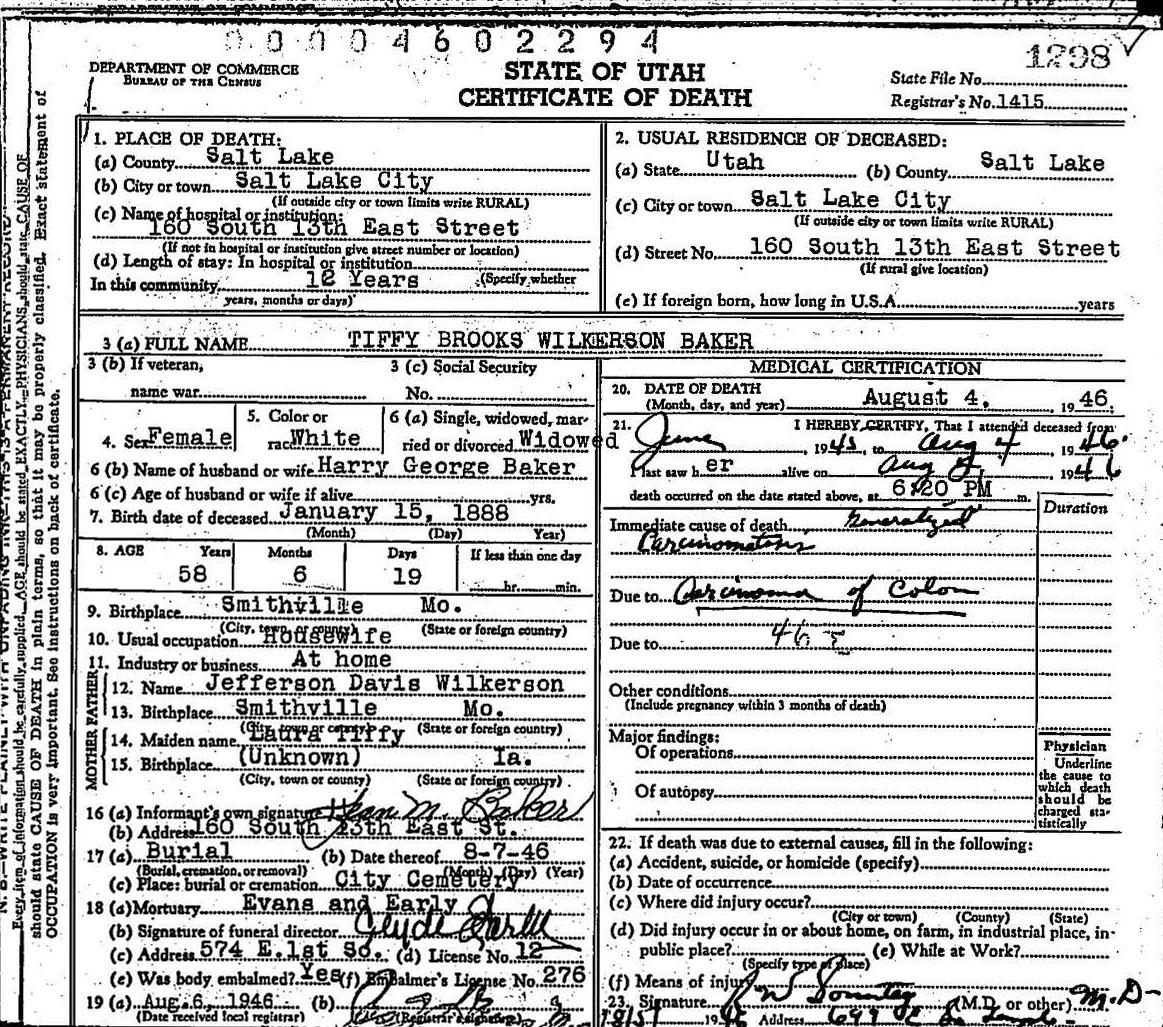 00004602294
1298
DEPARTMENT OF COMMERCE
BUREAU OF THE CENSUS
STATE OF UTAH
CERTIFICATE OF DEATH
State File No.
Registrar's No. 1415
Every item of information should be carefully supplied. AGE should be stated EXACTLY. PHYSICIANS should state CAUSE OF
should state CAUSE OF DEATH in plain terms, so that it may be properly classified. Exact statement of
OCCUPATION is very important. See instructions on back of certificate.
1. PLACE OF DEATH:
(a) County Salt Lake
(b) City or town Salt Lake City
(If outside city or town limits write RURAL)
(c) Name of hospital or institution:
160 South 13th East Street
(If not in hospital or institution give street number or location)
(d) Length of stay: In hospital or institution
In this community 12 Years (Specify whether
years, months or days)
2. USUAL RESIDENCE OF DECEASED:
(a) State Utah (b) County Salt Lake
(c) City or town Salt Lake City
(If outside city or town limits write RURAL)
(d) Street No. 160 South 13th East Street
(If rural give location)
(e) If foreign born, how long in U.S.A. years
3 (a) FULL NAME TIFFY BROOKS WILKERSON BAKER
3 (b) If veteran,
name war
3 (c) Social Security
No.
4. Sex Female
5. Color or
race White
6 (a) Single, widowed, mar-
ried or divorced Widowed
6 (b) Name of husband or wife Harry George Baker
6 (c) Age of husband or wife if alive yrs.
7. Birth date of deceased January 15, 1888
(Month) (Day) Year)
8. AGE Years Months Days If less than one day
58 6 19 hr. min.
9. Birthplace Smithville Mo.
(City, town, or county) (State or foreign country)
10. Usual occupation Housewife
11. Industry or business At home
FATHER
12. Name Jefferson Davis Wilkerson
13. Birthplace Smithville Mo.
(City, town or county) (State or foreign country)
MOTHER
14. Maiden name Laura Tiffy
15. Birthplace (Unknown) Ia.
(City, town or county) (State or foreign country)
16 (a) Informant's own signature M. Baker
(b) Address 160 South 13th East St.
17 (a) Burial (b) Date thereof 8-7-46
(Burial, cremation, or removal) (Month) (Day) (Year)
(c) Place: burial or cremation City Cemetery
18 (a) Mortuary Evans and Early
(b) Signature of funeral director Clyde
(c) Address 574 E. 1st So. (d) License No. 12
(e) Was body embalmed? Yes (f) Embalmer's License No. 276
19 (a) Aug. 6, 1946 (b)
(Date received local registrar) (Registrar's signature)
MEDICAL CERTIFICATION
20. DATE OF DEATH
(Month, day, and year) August 4, 1946
21. I HEREBY CERTIFY, That I attended deceased from
June, 1945, to Aug 4, 1946.
I last saw her alive on Aug, 1946
death occurred on the date stated above, at 6:20 PM m.
Duration
Immediate cause of death Generalized
Carcinomatosis
Due to Carcinoma of Colon
Due to 46
Other conditions
(Include pregnancy within 3 months of death)
Major findings:
Of operations
Of autopsy
Physician
Underline
the cause to
which death
should be
charged sta-
tistically
22. If death was due to external causes, fill in the following:
(a) Accident, suicide, or homicide (specify)
(b) Date of occurrence
(c) Where did injury occur?
(City or town) (County) (State)
(d) Did injury occur in or about home, on farm, in industrial place, in-
public place? (e) While at Work?
(Specify type of place)
(f) Means of injury
23. Signature (M.D. or other) M.D.
Address